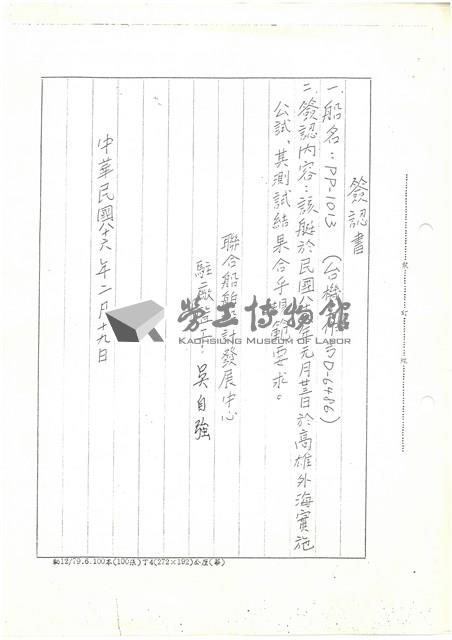 簽認書
一、船名：PP-1013 （台機 D-6486）
二、簽認內容：該艇於民國八 年元月廿三日於高雄外海實施
公試，其測試結果合乎規範要求。
聯合船舶設計發展中心
駐廠 ：吳自強
中華民國八十六年二月十九日
裝
訂
線
勞工博物館
KAOHSIUNG MUSEUM OF LABOR
12/79.6.100本(100張)丁4(272×192)公厘(華)